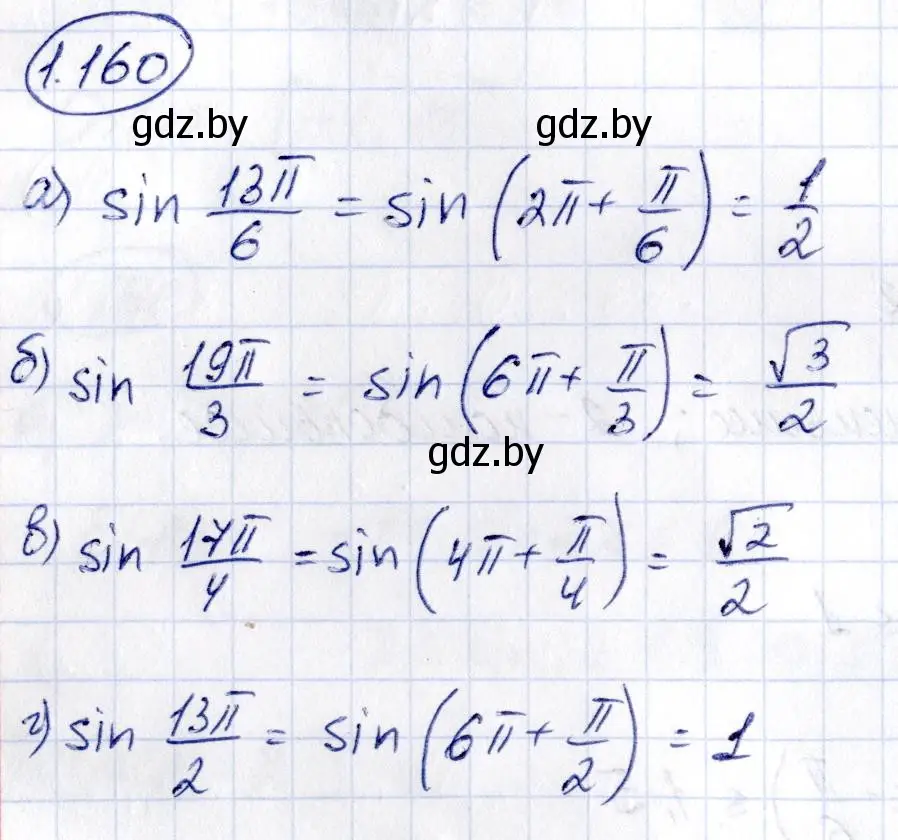 1.160
gdz.by gdz.by
а) sin 13π/6 = sin (2π + π/6) = 1/2
б) sin 19π/3 = sin (6π + π/3) = √3/2
gdz.by
в) sin 17π/4 = sin (4π + π/4) = √2/2
г) sin 13π/2 = sin (6π + π/2) = 1